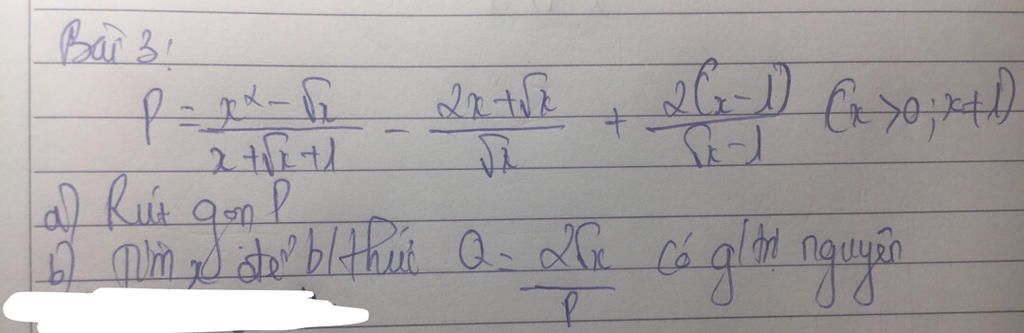 Bài 3:
P = \frac{x^2 - \sqrt{x}}{x + \sqrt{x} + 1} - \frac{2x + \sqrt{x}}{\sqrt{x}} + \frac{2(x - 1)}{\sqrt{x} - 1} (x > 0; x ≠ 1)
a) Rút gọn P
b) Tìm x để b/thức Q = \frac{2\sqrt{x}}{P} có g/trị nguyên